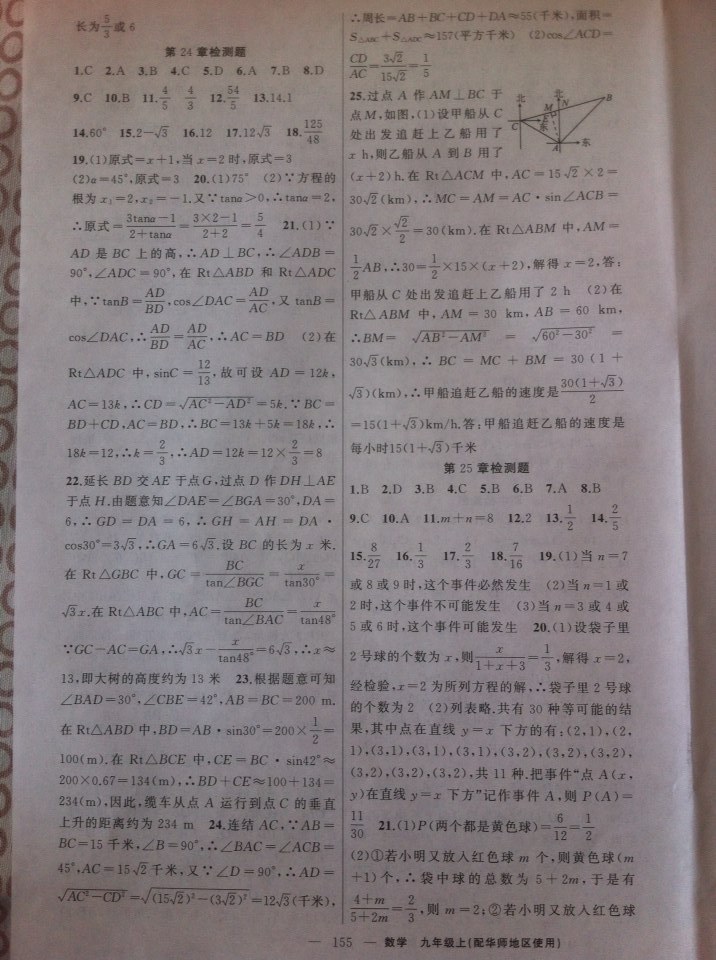 长为5/3或6
第24章检测题
1.C 2.A 3.B 4.C 5.D 6.A 7.B 8.D
9.C 10.B 11.4/5 4/3 12.54/5 13.14.1
14.60° 15.2-√3 16.12 17.12√3 18.125/48
19.(1)原式=x+1,当x=2时,原式=3
(2)α=45°,原式=3 20.(1)75° (2)∵方程的
根为x₁=2,x₂=-1.又∵tanα>0,∴tanα=2,
∴原式=(3tanα-1)/(2+tanα)=(3×2-1)/(2+2)=5/4 21.(1)∵
AD是BC上的高,∴AD⊥BC,∴∠ADB=
90°,∠ADC=90°,在Rt△ABD和Rt△ADC
中,∵tanB=AD/BD,cos∠DAC=AD/AC,又tanB=
cos∠DAC,∴AD/BD=AD/AC,∴AC=BD (2)在
Rt△ADC中,sinC=12/13,故可设AD=12k,
AC=13k,∴CD=√(AC²-AD²)=5k.∵BC=
BD+CD,AC=BD,∴BC=13k+5k=18k,∴
18k=12,∴k=2/3,∴AD=12k=12×2/3=8
22.延长BD交AE于点G,过点D作DH⊥AE
于点H.由题意知∠DAE=∠BGA=30°,DA=
6,∴GD=DA=6,∴GH=AH=DA·
cos30°=3√3,∴GA=6√3.设BC的长为x米.
在Rt△GBC中,GC=BC/tan∠BGC=x/tan30°=
√3x.在Rt△ABC中,AC=BC/tan∠BAC=x/tan48°
∵GC-AC=GA,∴√3x-x/tan48°=6√3,∴x≈
13,即大树的高度约为13米 23.根据题意可知
∠BAD=30°,∠CBE=42°,AB=BC=200 m.
在Rt△ABD中,BD=AB·sin30°=200×1/2=
100(m).在Rt△BCE中,CE=BC·sin42°≈
200×0.67=134(m),∴BD+CE≈100+134=
234(m),因此,缆车从点A运行到点C的垂直
上升的距离约为234 m 24.连结AC,∵AB=
BC=15千米,∠B=90°,∴∠BAC=∠ACB=
45°,AC=15√2千米,又∵∠D=90°,∴AD=
√(AC²-CD²)=√((15√2)²-(3√2)²)=12√3(千米),
∴周长=AB+BC+CD+DA≈55(千米),面积=
S△ABC+S△ADC≈157(平方千米) (2)cos∠ACD=
CD/AC=3√2/15√2=1/5
25.过点A作AM⊥BC于
点M,如图,(1)设甲船从C
处出发追赶上乙船用了
x h,则乙船从A到B用了
北
北
M
N
B
C
东
A
东
(x+2)h.在Rt△ACM中,AC=15√2×2=
30√2(km),∴MC=AM=AC·sin∠ACB=
30√2×√2/2=30(km).在Rt△ABM中,AM=
1/2AB,∴30=1/2×15×(x+2),解得x=2,答:
甲船从C处出发追赶上乙船用了2 h (2)在
Rt△ABM中,AM=30 km,AB=60 km,
∴BM=√(AB²-AM²)=√(60²-30²)=
30√3(km),∴BC=MC+BM=30(1+
√3)(km),∴甲船追赶乙船的速度是30(1+√3)/2
=15(1+√3)km/h.答:甲船追赶乙船的速度是
每小时15(1+√3)千米
第25章检测题
1.B 2.D 3.B 4.C 5.B 6.B 7.A 8.B
9.C 10.A 11.m+n=8 12.2 13.1/2 14.2/5
15.8/27 16.1/3 17.2/3 18.7/16 19.(1)当n=7
或8或9时,这个事件必然发生 (2)当n=1或
2时,这个事件不可能发生 (3)当n=3或4或
5或6时,这个事件可能发生 20.(1)设袋子里
2号球的个数为x,则x/(1+x+3)=1/3,解得x=2,
经检验,x=2为所列方程的解,∴袋子里2号球
的个数为2 (2)列表略.共有30种等可能的结
果,其中点在直线y=x下方的有:(2,1),(2,
1),(3,1),(3,1),(3,1),(3,2),(3,2),(3,2),
(3,2),(3,2),(3,2),共11种.把事件“点A(x,
y)在直线y=x下方”记作事件A,则P(A)=
11/30 21.(1)P(两个都是黄色球)=6/12=1/2
(2)①若小明又放入红色球m个,则黄色球(m
+1)个,∴袋中球的总数为5+2m,于是有
(4+m)/(5+2m)=2/3,则m=2;②若小明又放入红色球
— 155 — 数学 九年级上(配华师地区使用)